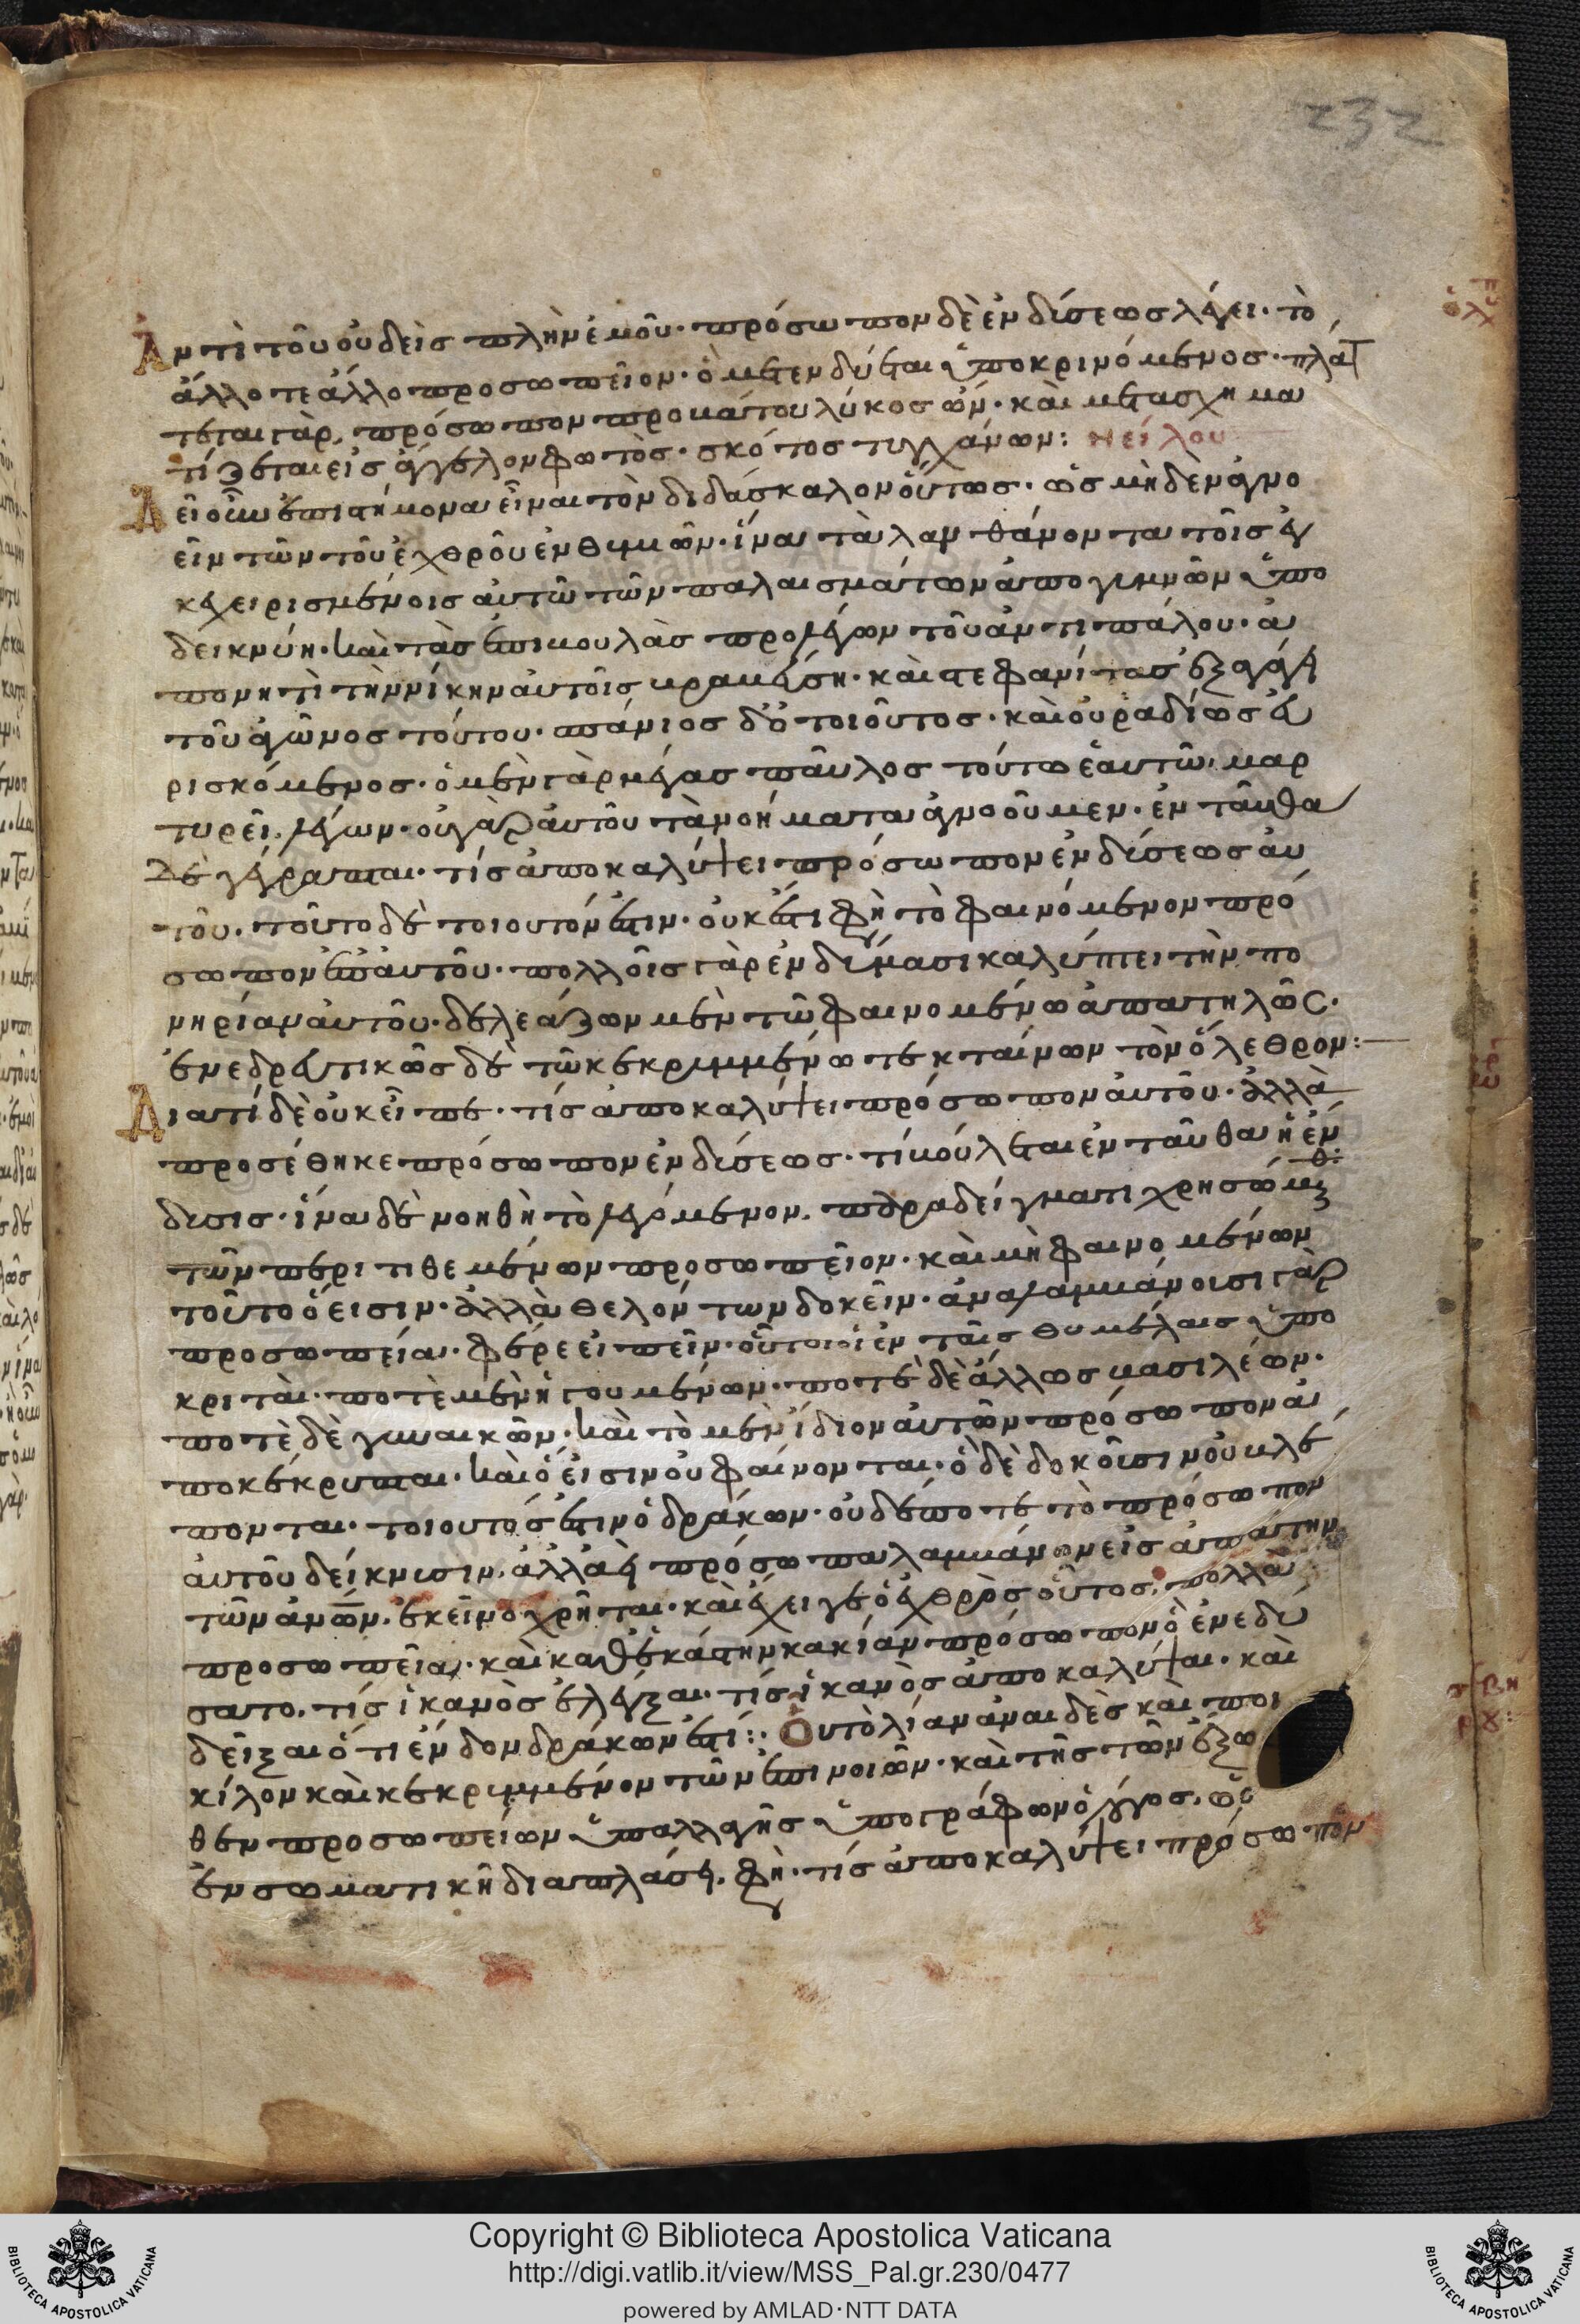 232
Ἀντὶ τοῦ οὐδεὶς πλὴν ἐμοῦ· πρόσωπον δὲ ἐνδύσεως λέγει· τὸ
ἄλλοτε ἄλλο προσωπεῖον· ὃ μετενδύεται ὑποκρινόμενος· πλάτ
τεται γὰρ, πρόσωπον προβάτου λύκος ὤν· καὶ μετασχημα
τίζεται εἰς ἄγγελον φωτὸς· σκότος τυγχάνων: Νείλου
Δεῖ οὖν ἐπιστήμονα εἶναι τὸν διδάσκαλον οὕτως· ὡς μηδὲν ἀγνο
εῖν τῶν τοῦ ἐχθροῦ ἐνθυμιῶν· ἵνα τὰ λανθάνοντα τοῖς ἐγ
κεχειρισμένοις αὐτῶ τῶν παλαισμάτων ἀπογυμνῶν ὑπο
δεικνύη· καὶ τὰς ἐπιβουλὰς προλέγων τοῦ ἀντιπάλου· ἀ
πονητὶ τὴν νίκην αὐτοῖς βραβεύση· καὶ στεφανίτας ἐξαγάγη
τοῦ ἀγῶνος τούτου· σπάνιος δ' ὁ τοιοῦτος· καὶ οὐ ῥαδίως εὑ
ρισκόμενος· ὁ μὲν γὰρ μέγας παῦλος τοῦτο ἑαυτῶ· μαρ
τυρεῖ, λέγων· οὐ γὰρ αὐτοῦ τὰ νοήματα ἀγνοοῦμεν· ἐνταῦθα
δὲ γέγραπται· τίς ἀποκαλύψει πρόσωπον ἐνδύσεως αὐ
τοῦ· τοῦτο δὲ τοιουτόν ἐστιν· οὐκ ἔστι φη τὸ φαινόμενον πρό
σωπον ἐπ' αὐτοῦ· πολλοῖς γὰρ ἐνδύμασι καλύπτει τὴν πο
νηρίαν αὐτοῦ· δελεάζων μὲν τῶ φαινομένω ἀπατηλῶς·
ἐνεδρευτικῶς δὲ τῶ κεκρυμμένω τεκταίνων τὸν ὄλεθρον:
Διατί δὲ οὐκ εἶπε· τίς ἀποκαλύψει πρόσωπον αὐτοῦ· ἀλλὰ
προσέθηκε πρόσωπον ἐνδύσεως· τί βούλεται ἐνταῦθα ἡ ἔν
δυσις· ἵνα δὲ νοηθῆ τὸ λεγόμενον, παραδείγματι χρησώμεθα·
τῶν περιτιθεμένων προσωπεῖον· καὶ μὴ φαινομένων
τοῦτο ὅ εισιν· ἀλλὰ θελόντων δοκεῖν· ἀναλαμβάνουσι γὰρ
προσωπεία· φέρε εἰπεῖν· οὗτοι οἱ ἐν ταῖς θυμέλαις ὑπο
κριταὶ· ποτὲ μὲν ἡγουμένων· ποτὲ δὲ ἄλλως βασιλέων·
ποτὲ δὲ γυναικῶν· καὶ τὸ μὲν ἴδιον αὐτῶν πρόσωπον ἀ
ποκέκρυπται· καὶ ὅ εἰσιν οὐ φαίνονται· ὃ δὲ δοκοῦσιν οὐ βλέ
πονται· τοιουτός ἐστιν ὁ δράκων· οὐδέποτε τὸ πρόσωπον
αὐτοῦ δείκνυσιν, ἀλλὰ πρόσωπα λαμβάνων εἰς ἀπάτην
τῶν ἀνων, ἐκείνο χρῆται· καὶ ἔχει γε ὁ ἐχθρὸς οὗτος, πολλὰ
προσωπεῖα· καὶ καθ' ἑκάστην κακίαν πρόσωπον ὃ ἐνεδύ
σατο, τίς ἱκανὸς ἐλέγξαι· τίς ἱκανὸς ἀποκαλύψαι· καὶ
δεῖξαι ὅτι ἔνδον δράκων ἐστί: Οὐ τὸ λίαν ἀναιδὲς καὶ ποι
κίλον καὶ κεκρυμμένον τῶν ἐπινοιῶν· καὶ τῆς τῶν ἔξω
θεν προσωπείων ὑπαλλαγῆς ὑπογράφων ὁ λόγος, ὡς
ἐν σωματικῆ διαπλάσει, φη· τίς ἀποκαλύψει πρόσωπον